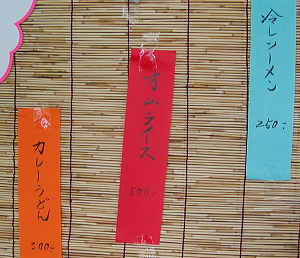 冷しソーメン
250.-
オムライス
500.-
カレーうどん
300.-